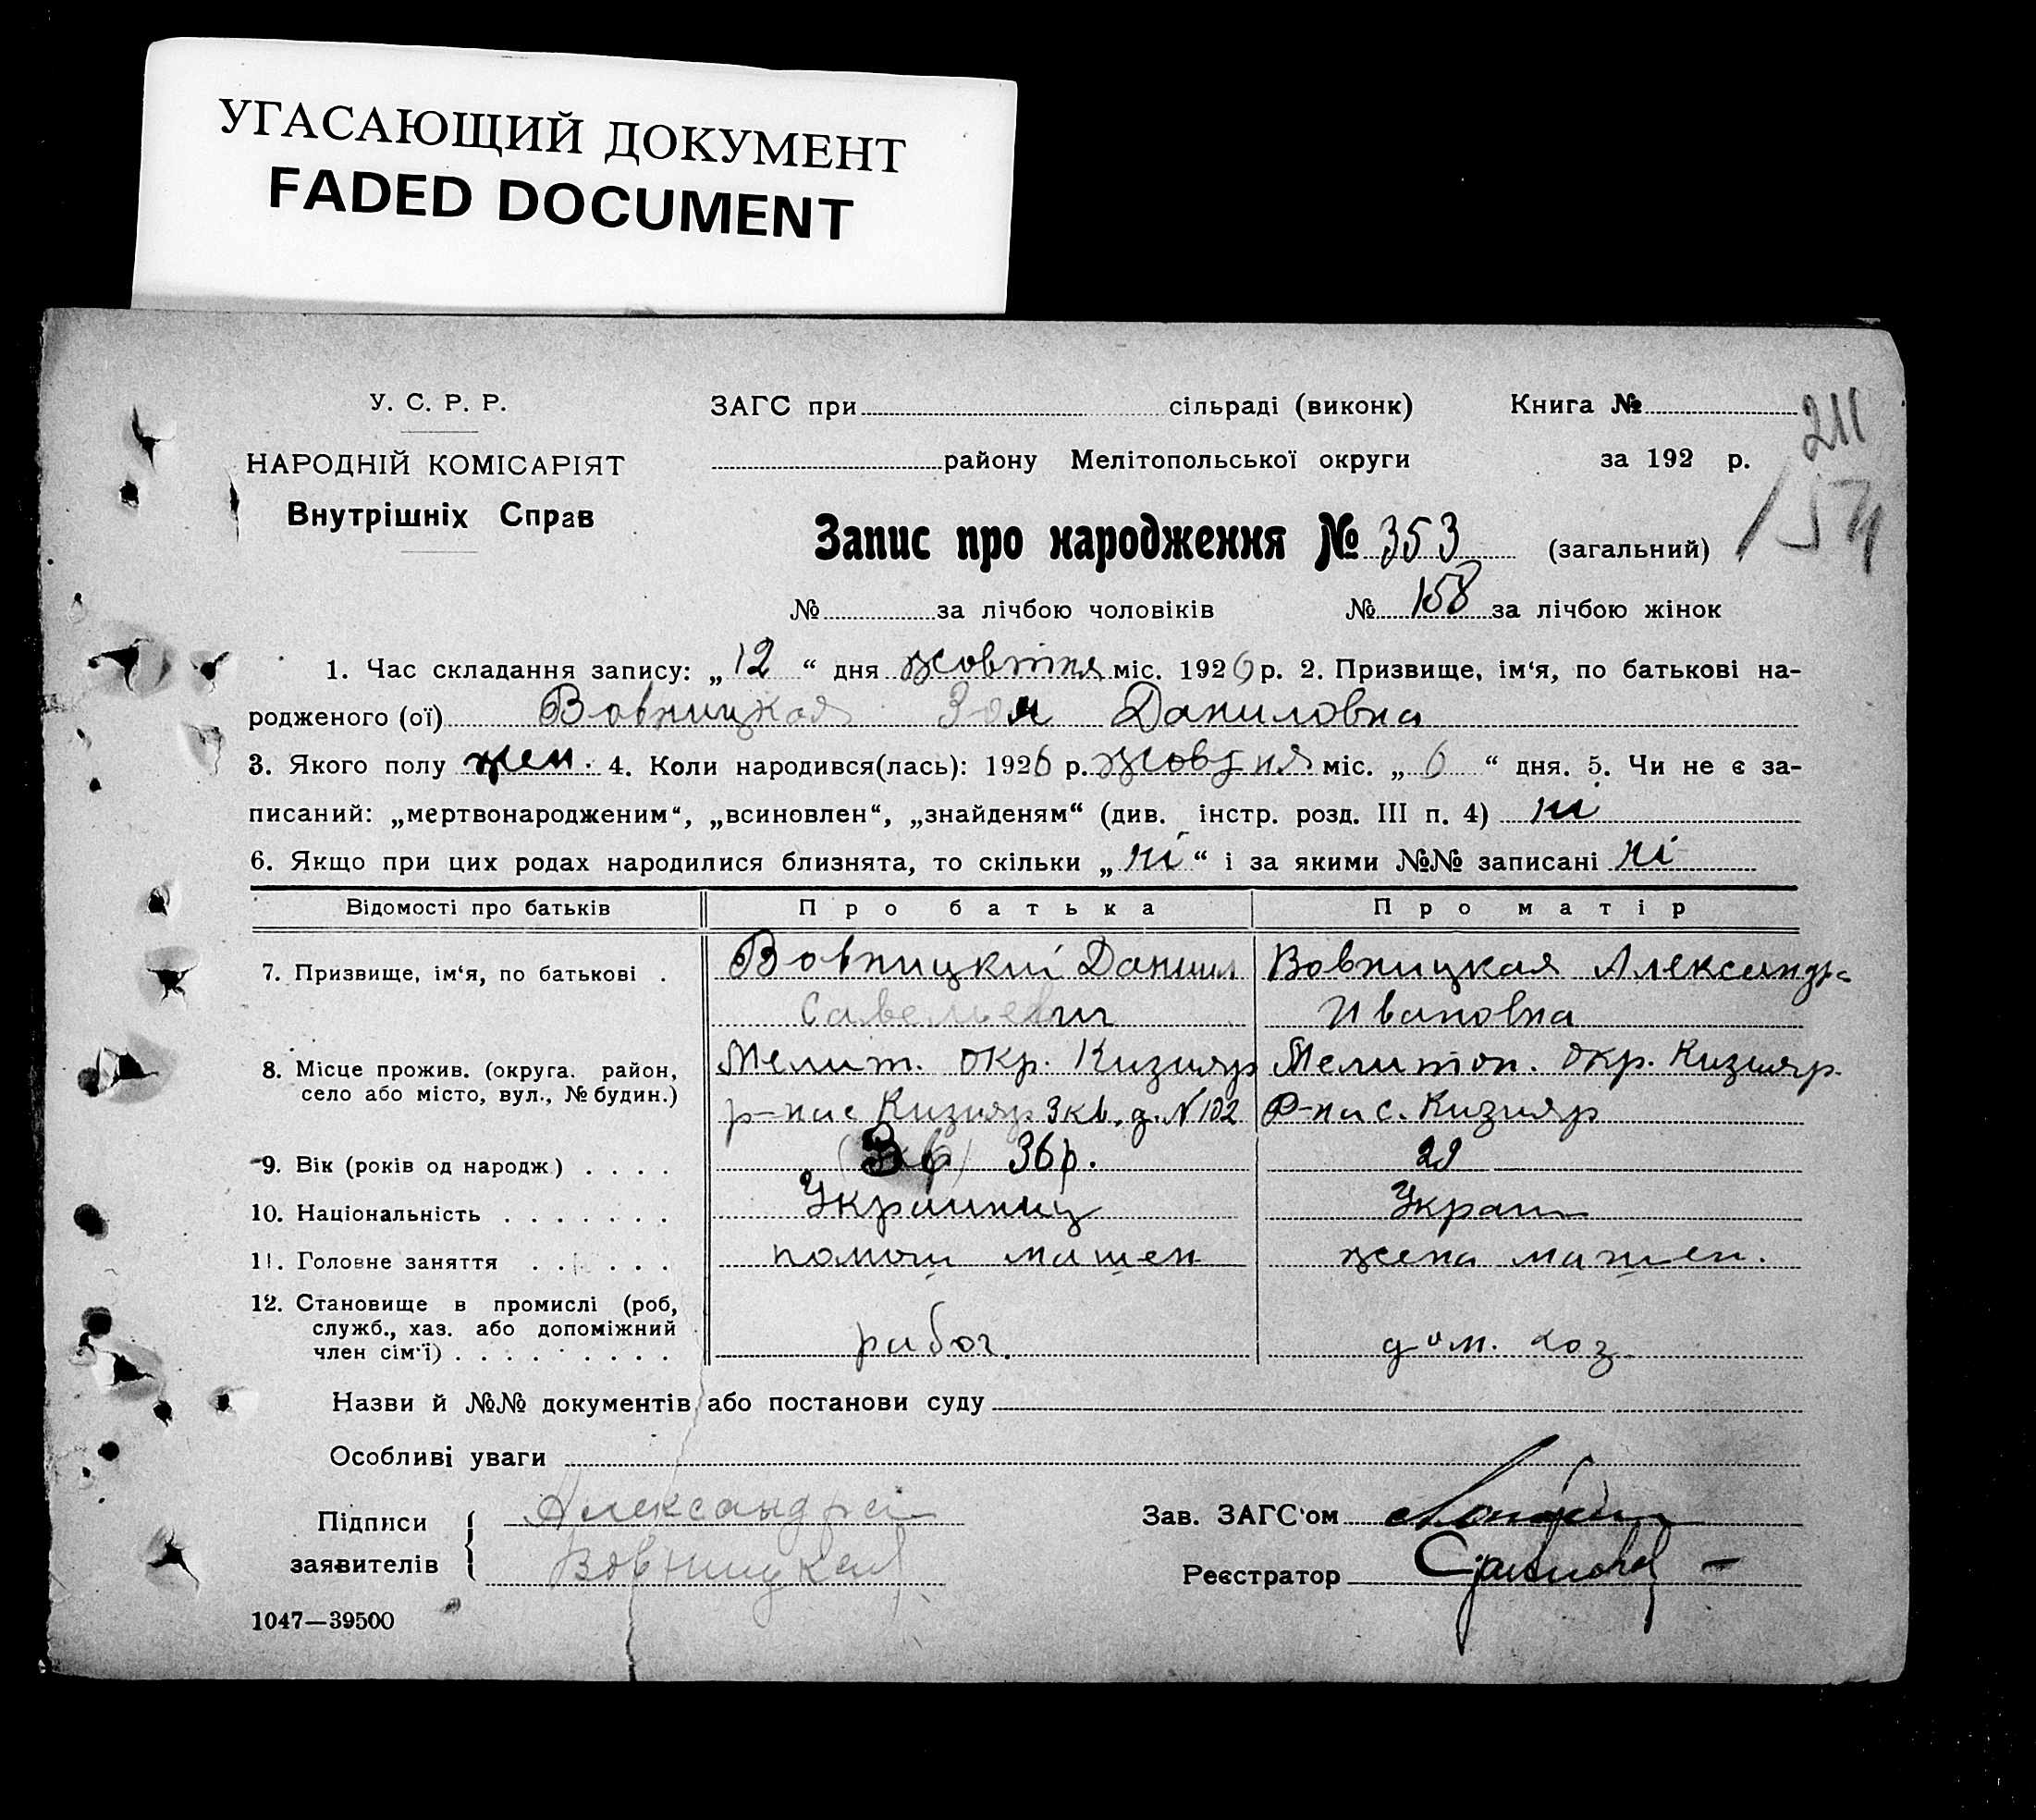 УГАСАЮЩИЙ ДОКУМЕНТ
FADED DOCUMENT
У. С. Р. Р. ЗАГС при сільраді (виконк) Книга № 211
НАРОДНІЙ КОМІСАРІЯТ району Мелітопольської округи за 192 р.
Внутрішніх Справ
Запис про народження № 353 (загальний) 154
№ за лічбою чоловіків № 158 за лічбою жінок
1. Час складання запису: „ 12 “ дня жовтня міс. 1926 р. 2. Призвище, ім‘я, по батькові на-
родженого (ої) Вовницкая Зоя Даниловна
3. Якого полу жен. 4. Коли народився(лась): 1926 р. жовтня міс. „ 6 “ дня. 5. Чи не є за-
писаний: „мертвонародженим“, „всиновлен“, „знайденям“ (див. інстр. розд. III п. 4) ни
6. Якщо при цих родах народилися близнята, то скільки „ ні “ і за якими №№ записані ні
Відомості про батьків Про батька Про матір
7. Призвище, ім‘я, по батькові . Вовницкий Даниил Вовницкая Александра
Савельевич Ивановна
8. Місце прожив. (округа. район, Мелит. окр. Кизияр Мелитоп. окр. Кизияр.
село або місто, вул., № будин.) р-на с. Кизияр 3 кв. д. № 102 Р-на с. Кизияр
9. Вік (років од народж) . . . . 36 р. 29
10. Національність . . . . . . . Украинец Украин
11. Головне заняття . . . . . помощ машен жена машен.
12. Становище в промислі (роб,
служб., хаз. або допоміжний
член сім‘ї) . . . . . . . . . рабоч. дом. хоз.
Назви й №№ документів або постанови суду
Особливі уваги
Підписи Александра Зав. ЗАГС‘ом
заявителів Вовницкая Реєстратор
1047—39500